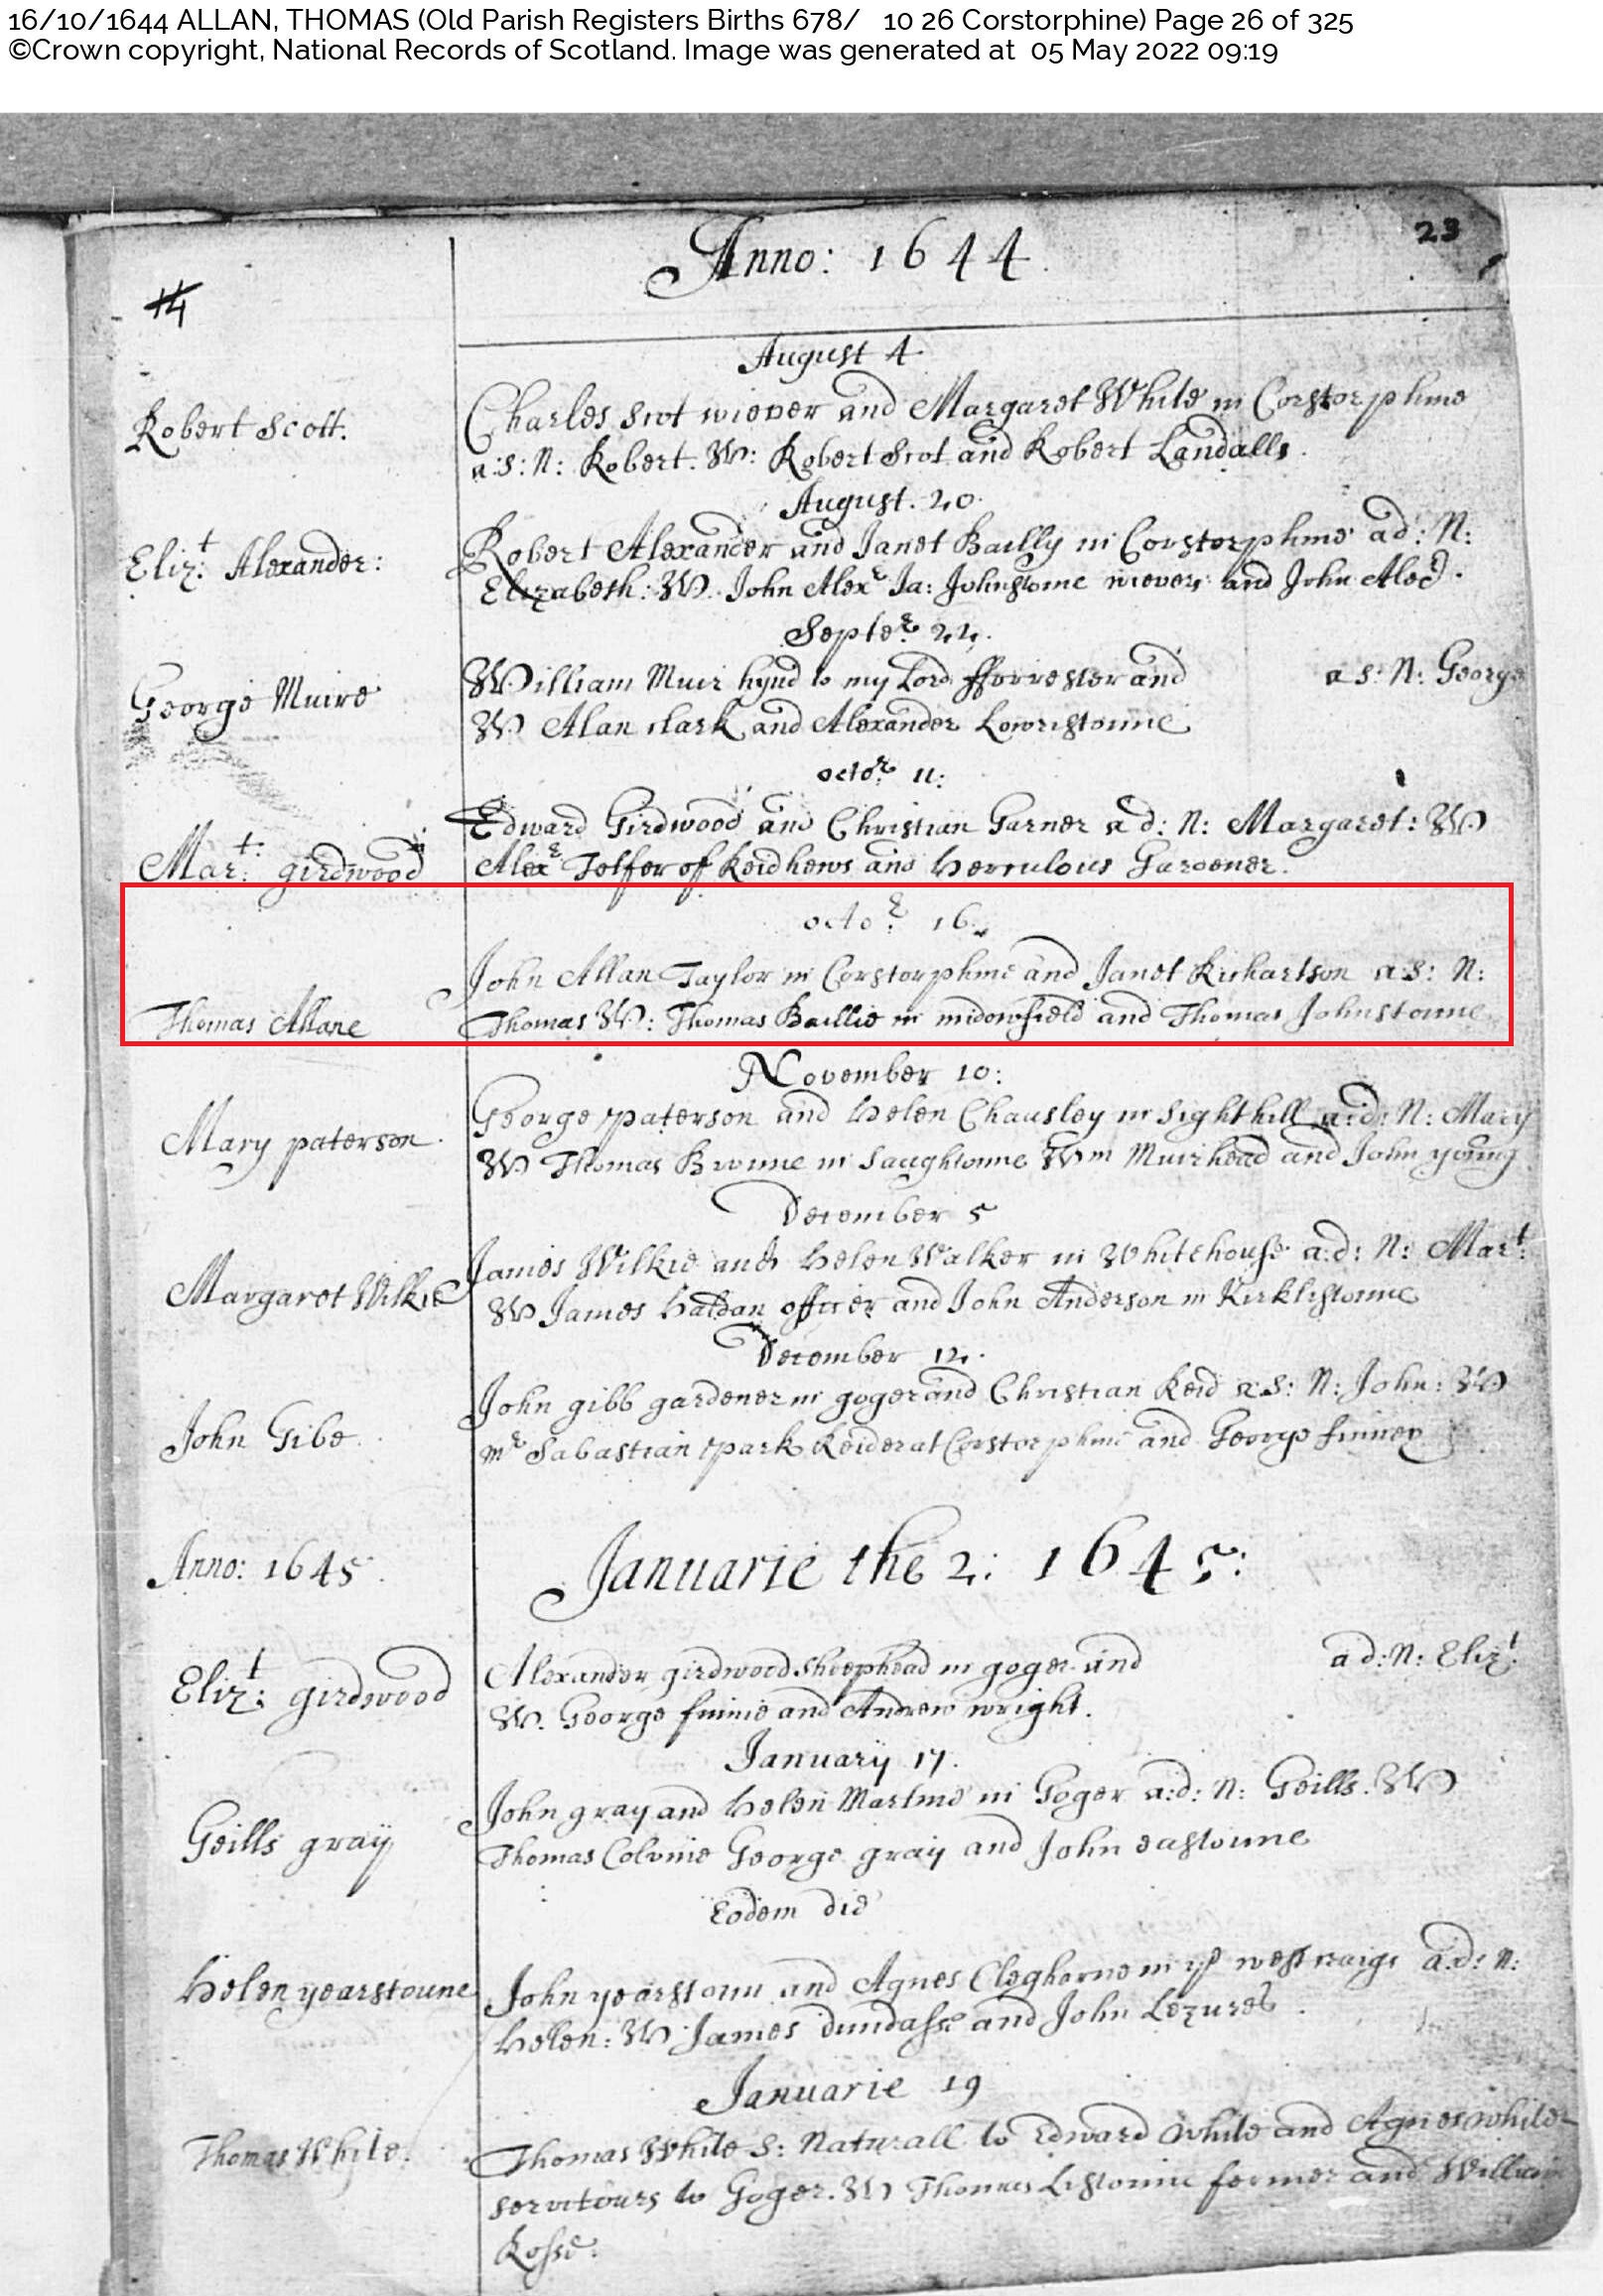 16/10/1644 ALLAN, THOMAS (Old Parish Registers Births 678/ 10 26 Corstorphine) Page 26 of 325
©Crown copyright, National Records of Scotland. Image was generated at 05 May 2022 09:19
23
Anno: 1644
14
August 4
Robert Scott.
Charles Scot wiever and Margaret White in Corstorphine
a:s: N: Robert. W: Robert Scot and Robert Landalls.
August. 20
Eliz:t Alexander:
Robert Alexander and Janet Bailly in Corstorphine ad: N:
Elizabeth: W. John Alexr Ja: Johnstoune wiever and John
Septer 22.
George Muire
William Muir hynd to my Lord fforrester and a s: N: George
W Alan clark and Alexander Lowristoune
octor 11:
Mart: girdwood
Edward Girdwood and Christian Garner a d: N: Margaret: W
Alexr Telfer of Reidhews and Herculous Gardener.
octor 16
Thomas Allane
John Allan Taylor in Corstorphine and Janet Richartson a:s: N:
Thomas W: Thomas Baillie in midowfield and Thomas Johnstoune
November 10:
Mary paterson.
George paterson and Helen Chausley in Sighthill a:d: N: Mary
W Thomas Brounne in Saughtoune Wm Muirhead and John young
December 5
Margaret Wilkie
James Wilkie and Helen Walker in Whitehouse a:d: N: Mart:
W James Haldan officer and John Anderson in Kirklistoune
December 12.
John Gibe
John gibb gardener in goger and Christian Reid a:s: N: John: W
mr Sabastian park Reider at Corstorphine and George finney
Anno: 1645
Januarie the 2: 1645:
Eliz:t girdwood
Alexander girdwood sheephead in goger and a d: N: Eliz:t
W. George finnie and Andrew wright.
Januarij 17.
Geills graij
John gray and Helen Martine in Goger a:d: N: Geills. W
Thomas Colvine George graij and John eastoune
Eodem die
Helen yearstoune
John yearstoun and Agnes Cleghorne in ye west craigs a:d: N:
Helen: W James dundasse and John
Januarie 19
Thomas White.
Thomas White s: Naturall to Edward White and Agnes white
servitours to Goger. W Thomas Listoune fermer and William
Rosse.